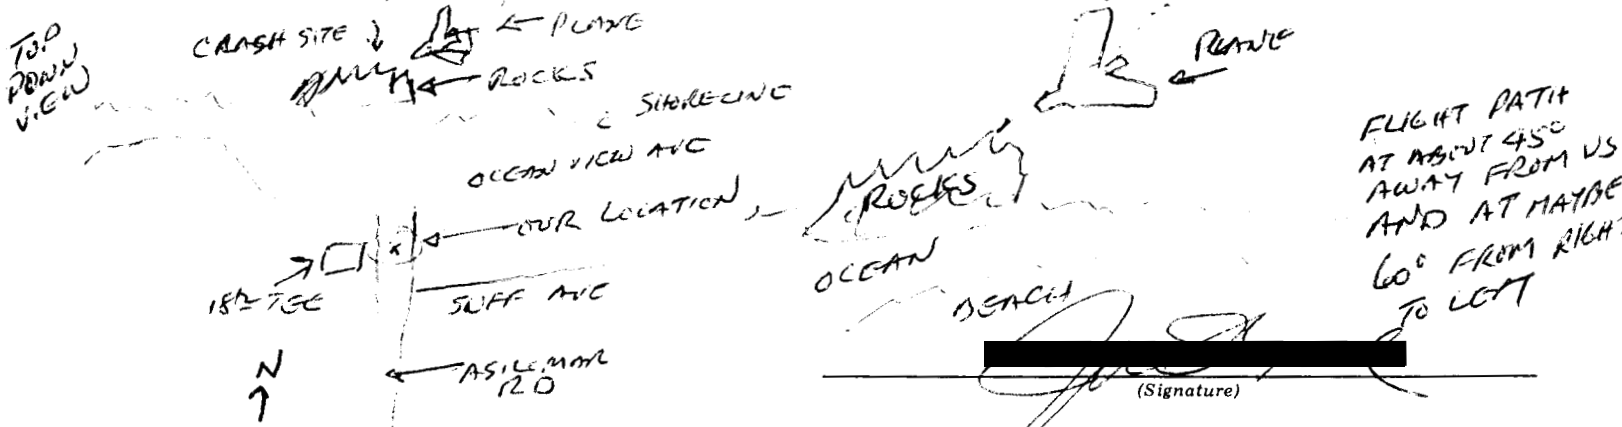 TOP
DOWN
VIEW
CRASH SITE
PLANE
ROCKS
SHORELINE
OCEAN VIEW AVE
OUR LOCATION
18th TEE
SUFF AVE
N
ASILOMAR
RD
PLANE
ROCKS
OCEAN
BEACH
FLIGHT PATH
AT ABOUT 45°
AWAY FROM US
AND AT MAYBE
60° FROM RIGHT
TO LEFT
(Signature)